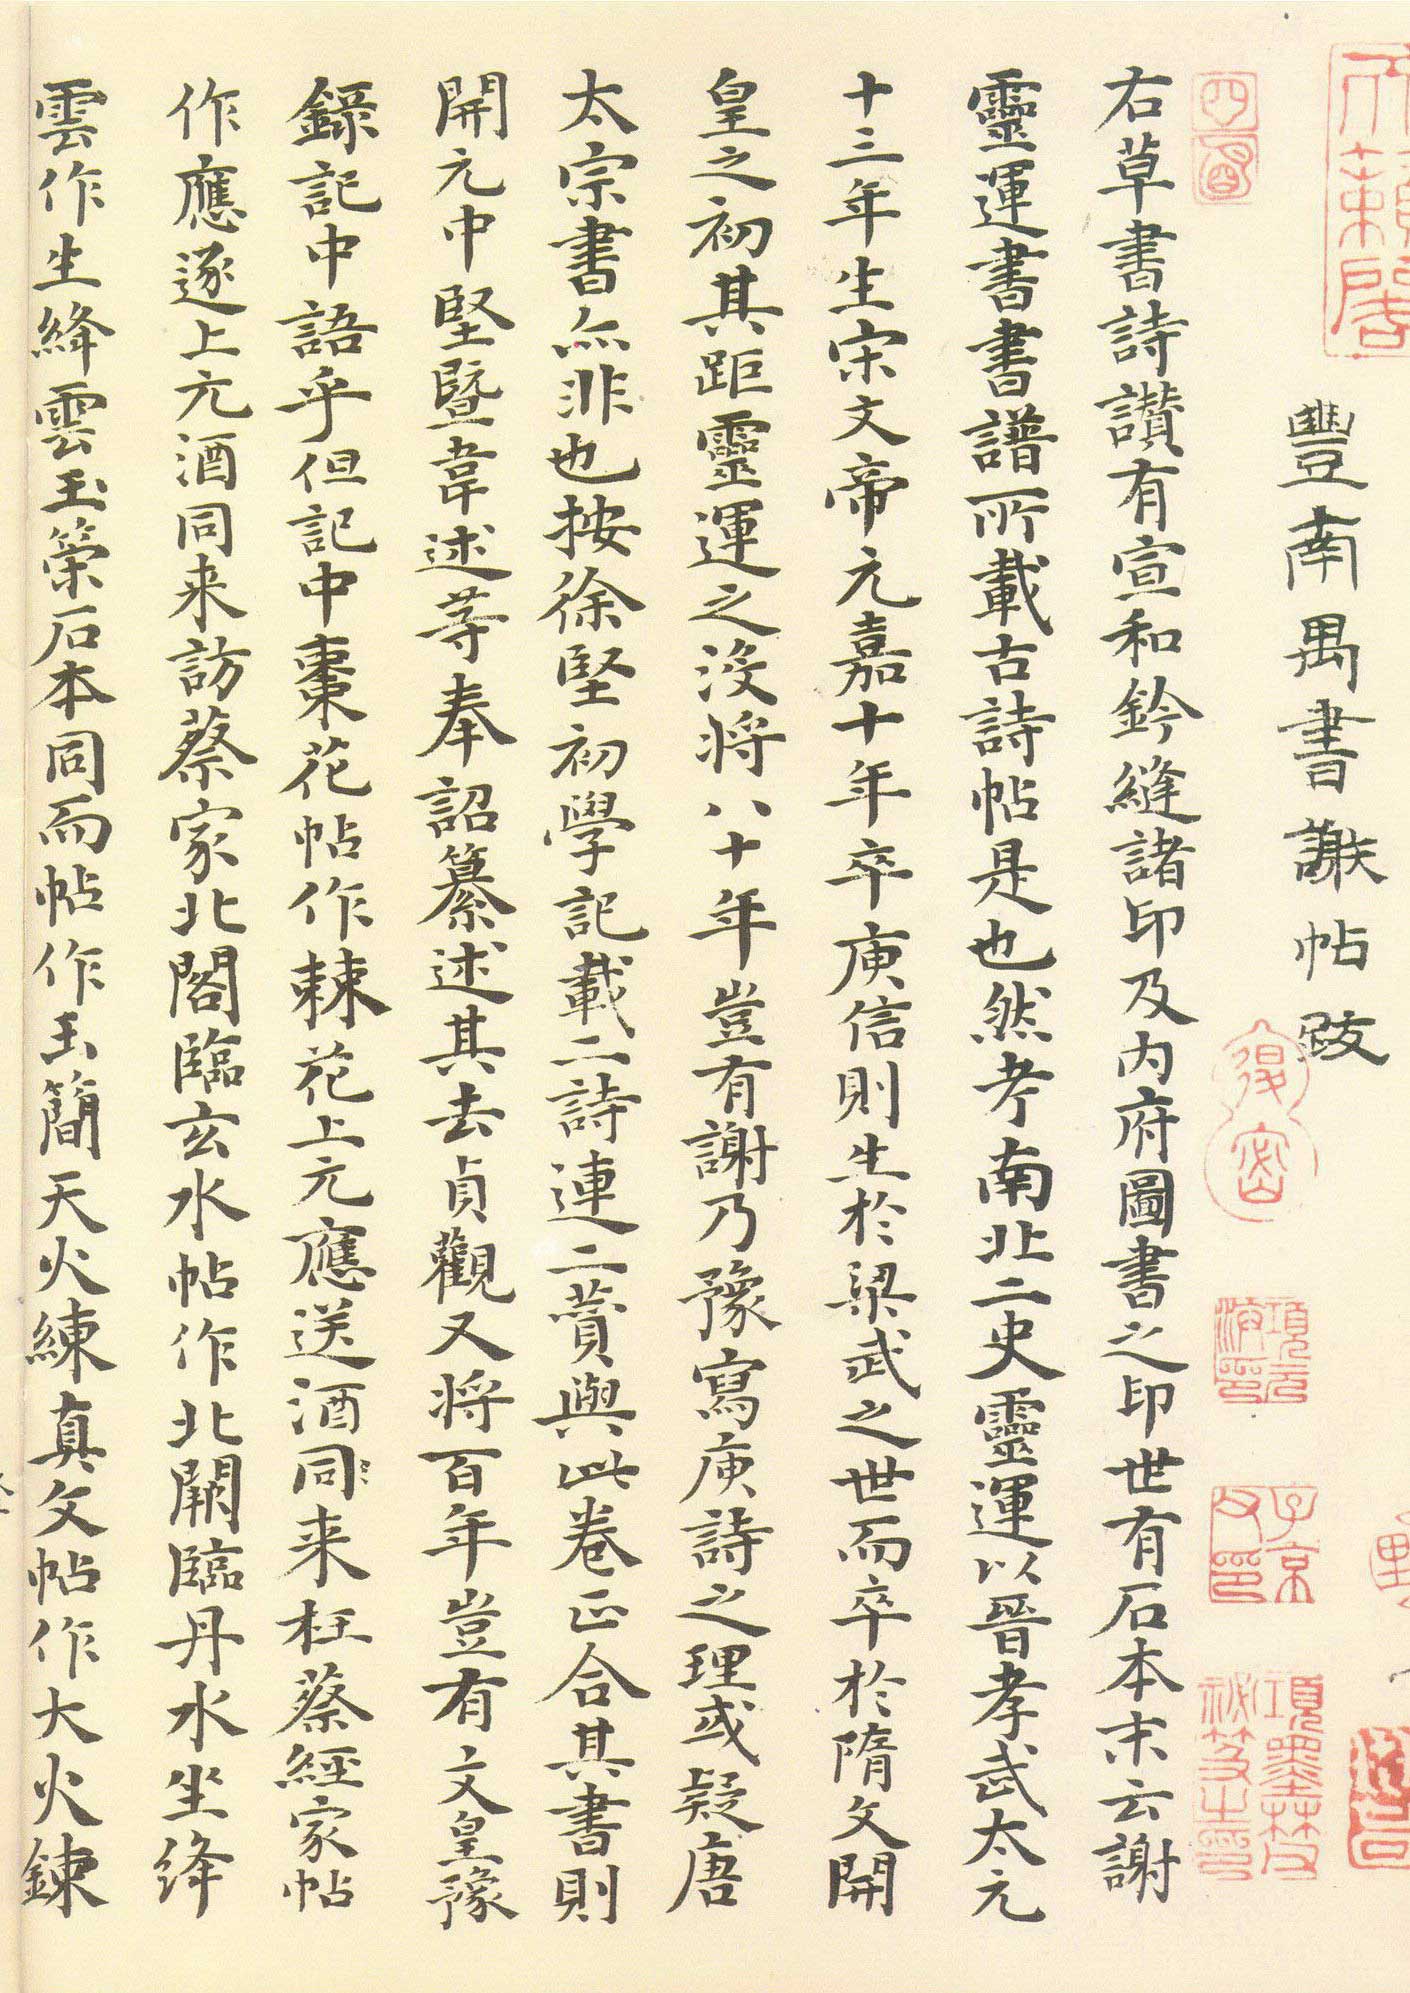 豐南禺書謝帖跋
右草書詩讚有宣和鈐縫諸印及內府圖書之印世有石本末云謝
靈運書書譜所載古詩帖是也然考南北二史靈運以晉孝武太元
十三年生宋文帝元嘉十年卒庾信則生於梁武之世而卒於隋文開
皇之初其距靈運之沒將八十年豈有謝乃豫寫庾詩之理或疑唐
太宗書亦非也按徐堅初學記載二詩連二賛與此卷正合其書則
開元中堅暨韋述等奉詔纂述其去貞觀又將百年豈有文皇豫
錄記中語乎但記中棗花帖作棘花上元應送酒同来枉蔡經家帖
作應逐上元酒同来訪蔡家北閣臨玄水帖作北闕臨丹水坐絳
雲作生絳雲玉策石本同而帖作玉簡天火練真文帖作大火鍊
項元
汴印
子京
父印
項墨林父
祕笈之印